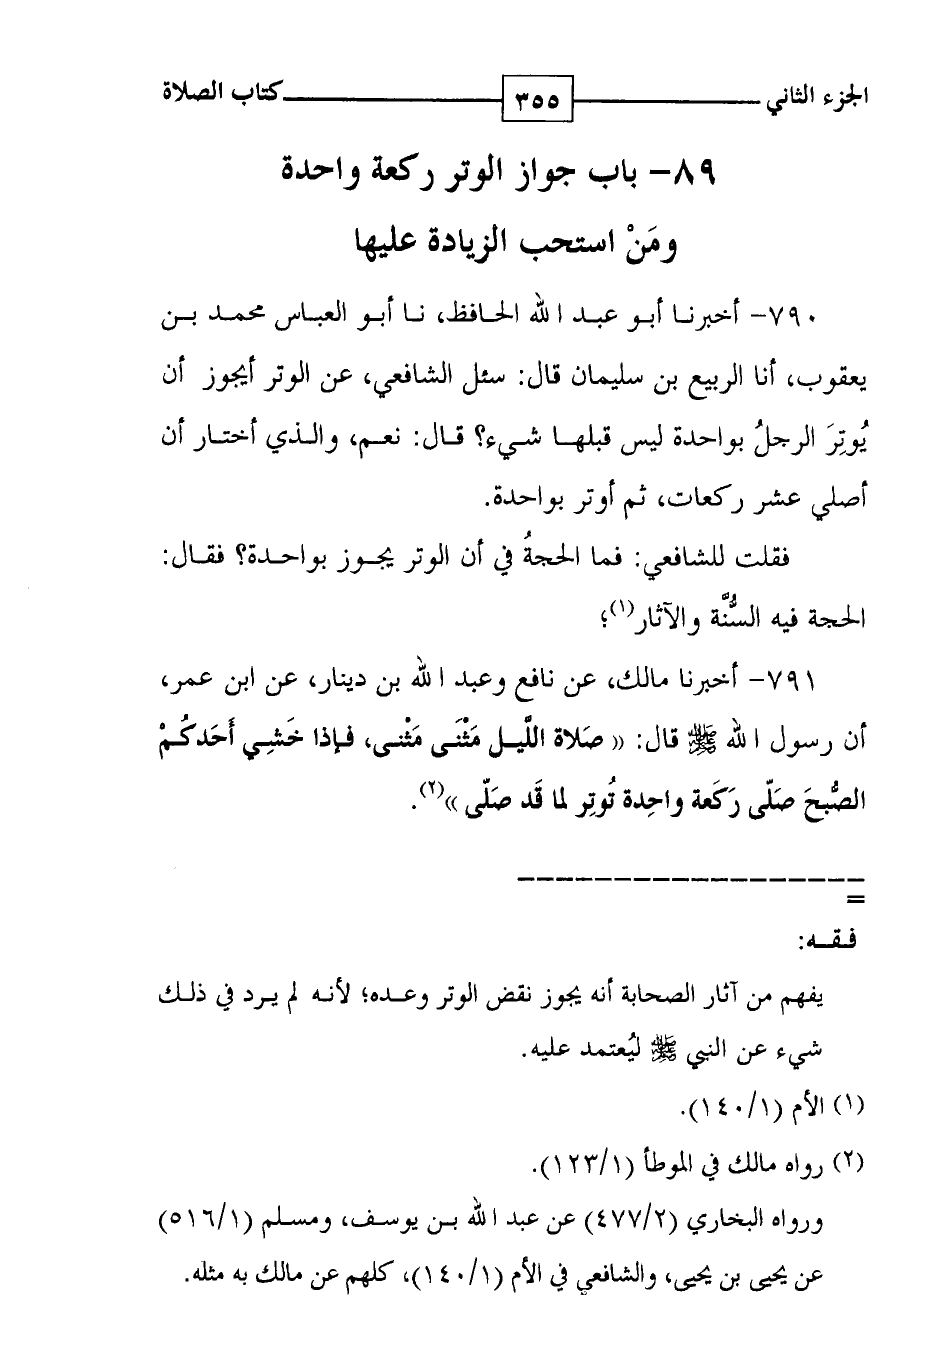 الجزء الثاني ٣٥٥ كتاب الصلاة
٨٩- باب جواز الوتر ركعة واحدة
ومَنْ استحب الزيادة عليها
٧٩٠- أخبرنا أبو عبد الله الحافظ، نا أبو العباس محمد بن
يعقوب، أنا الربيع بن سليمان قال: سئل الشافعي، عن الوتر أيجوز أن
يُوتِرَ الرجلُ بواحدة ليس قبلها شيء؟ قال: نعم، والذي أختار أن
أصلي عشر ركعات، ثم أوتر بواحدة.
فقلت للشافعي: فما الحجةُ في أن الوتر يجوز بواحدة؟ فقال:
الحجة فيه السُّنَّة والآثار(١)؛
٧٩١- أخبرنا مالك، عن نافع وعبد الله بن دينار، عن ابن عمر،
أن رسول الله ﷺ قال: « صَلاة اللَّيل مَثْنَى مَثْنى، فإذا خَشِي أَحَدكُمْ
الصُّبحَ صَلّى رَكَعة واحِدة تُوتِر لما قَد صَلّى »(٢).
=
فقه:
يفهم من آثار الصحابة أنه يجوز نقض الوتر وعده؛ لأنه لم يرد في ذلك
شيء عن النبي ﷺ ليُعتمد عليه.
(١) الأم (١/١٤٠).
(٢) رواه مالك في الموطأ (١/١٢٣).
ورواه البخاري (٢/٤٧٧) عن عبد الله بن يوسف، ومسلم (١/٥١٦)
عن يحيى بن يحيى، والشافعي في الأم (١/١٤٠)، كلهم عن مالك به مثله.